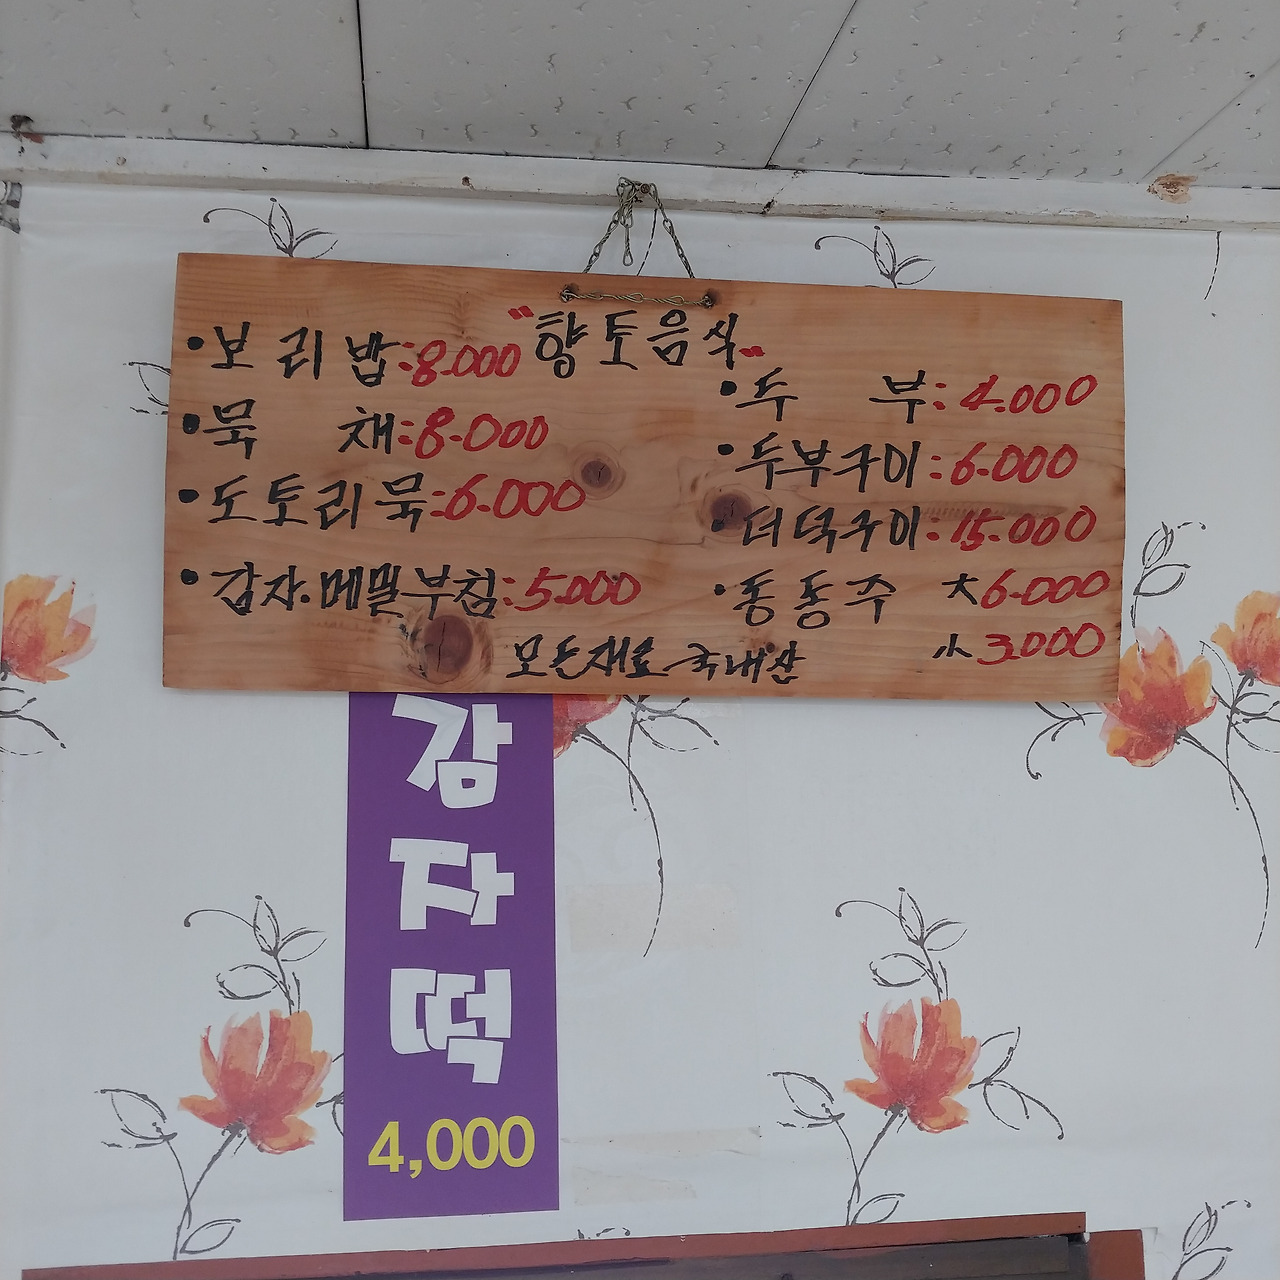 "향토음식"
• 보리밥: 8.000
• 묵 채: 8.000
• 도토리묵: 6.000
• 감자.메밀부침: 5.000
• 두 부: 4.000
• 두부구이: 6.000
• 더덕구이: 15.000
• 동동주 大 6.000
小 3.000
모든재료 국내산
감
자
떡
4,000